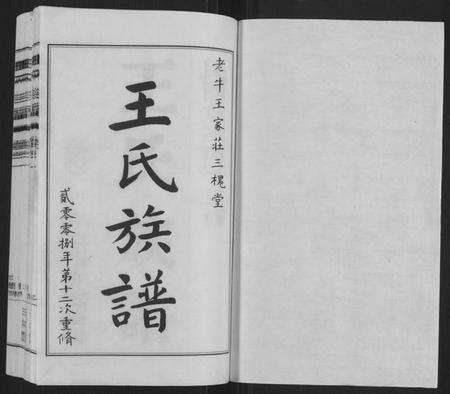 老牛王家莊三槐堂
王氏族譜
貳零零捌年第十二次重脩